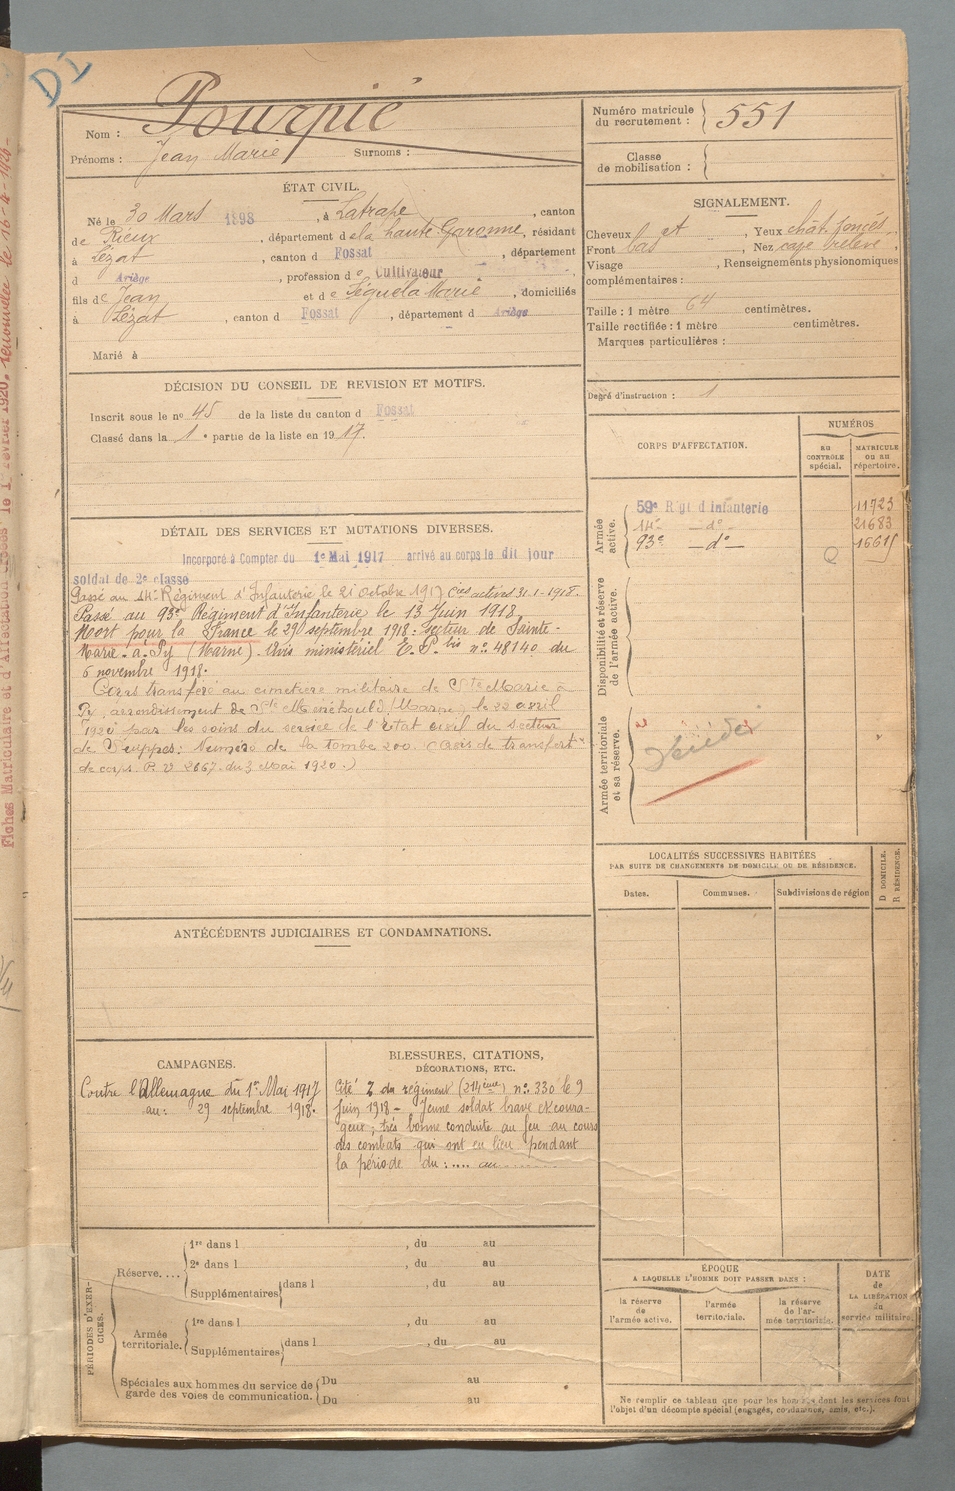 D1
Nom : Pourpié
Prénoms : Jean Marie Surnoms :
Numéro matricule du recrutement : 551
Classe de mobilisation :
ÉTAT CIVIL.
Né le 30 Mars 1898, à Latrape, canton
de Rieux, département de la haute Garonne, résidant
à Lézat, canton d Fossat, département
d Ariège, profession de Cultivateur,
fils de Jean et de Séguéla Marie, domiciliés
à Lézat, canton d Fossat, département d Ariège
Marié à
SIGNALEMENT.
Cheveux ct, Yeux chât. foncés,
Front bas, Nez cave relevé,
Visage, Renseignements physionomiques
complémentaires :
Taille : 1 mètre 64 centimètres.
Taille rectifiée : 1 mètre centimètres.
Marques particulières :
Degré d'instruction : 1
DÉCISION DU CONSEIL DE REVISION ET MOTIFS.
Inscrit sous le nº 45 de la liste du canton d Fossat
Classé dans la 1e partie de la liste en 1917.
CORPS D'AFFECTATION.
NUMÉROS
AU CONTRÔLE spécial.
MATRICULE OU AU répertoire.
Armée active.
59e Rgt d'Infanterie 11723
14e -do- 21683
93e -do- 16615
Disponibilité et réserve de l'armée active.
Armée territoriale et sa réserve.
DÉTAIL DES SERVICES ET MUTATIONS DIVERSES.
Incorporé à Compter du 1e Mai 1917 arrivé au corps le dit jour
soldat de 2e classe
Passé au 14e Régiment d'Infanterie le 21 Octobre 1917 Cies actives 31-1-1918.
Passé au 93e Régiment d'Infanterie le 13 Juin 1918
Mort pour la France le 29 septembre 1918 : secteur de Sainte-
Marie-à-Py (Marne). Avis ministériel E.P. bis nº 48140 du
6 novembre 1918.
Corps transféré au cimetière militaire de Ste Marie à
Py, arrondissement de Ste Menehould (Marne) le 22 avril
1920 par les soins du service de l'état civil du secteur
de Suippes : Numéro de la tombe 200. (Avis de transfert
de corps P.V 2667 du 3 Mai 1920.)
LOCALITÉS SUCCESSIVES HABITÉES
PAR SUITE DE CHANGEMENTS DE DOMICILE OU DE RÉSIDENCE.
Dates. Communes. Subdivisions de région
D DOMICILE.
R RÉSIDENCE.
ANTÉCÉDENTS JUDICIAIRES ET CONDAMNATIONS.
CAMPAGNES.
Contre l'Allemagne du 1er Mai 1917
au : 29 septembre 1918.
BLESSURES, CITATIONS,
DÉCORATIONS, ETC.
Cité du régiment (214ème) nº 330 le 9
Juin 1918 - Jeune soldat brave et coura-
geux ; très bonne conduite au feu au cours
des combats qui ont eu lieu pendant
la période du :.... au
PÉRIODES D'EXERCICES.
Réserve....
1re dans l, du au
2e dans l, du au
Supplémentaires dans l, du au
Armée territoriale.
1re dans l, du au
Supplémentaires dans l, du au
Spéciales aux hommes du service de garde des voies de communication.
Du au
Du au
ÉPOQUE
A LAQUELLE L'HOMME DOIT PASSER DANS :
la réserve de l'armée active.
l'armée territoriale.
la réserve de l'armée territoriale.
DATE de LA LIBÉRATION du service militaire.
Ne remplir ce tableau que pour les hommes dont les services font
l'objet d'un décompte spécial (engagés, condamnés, omis, etc.).